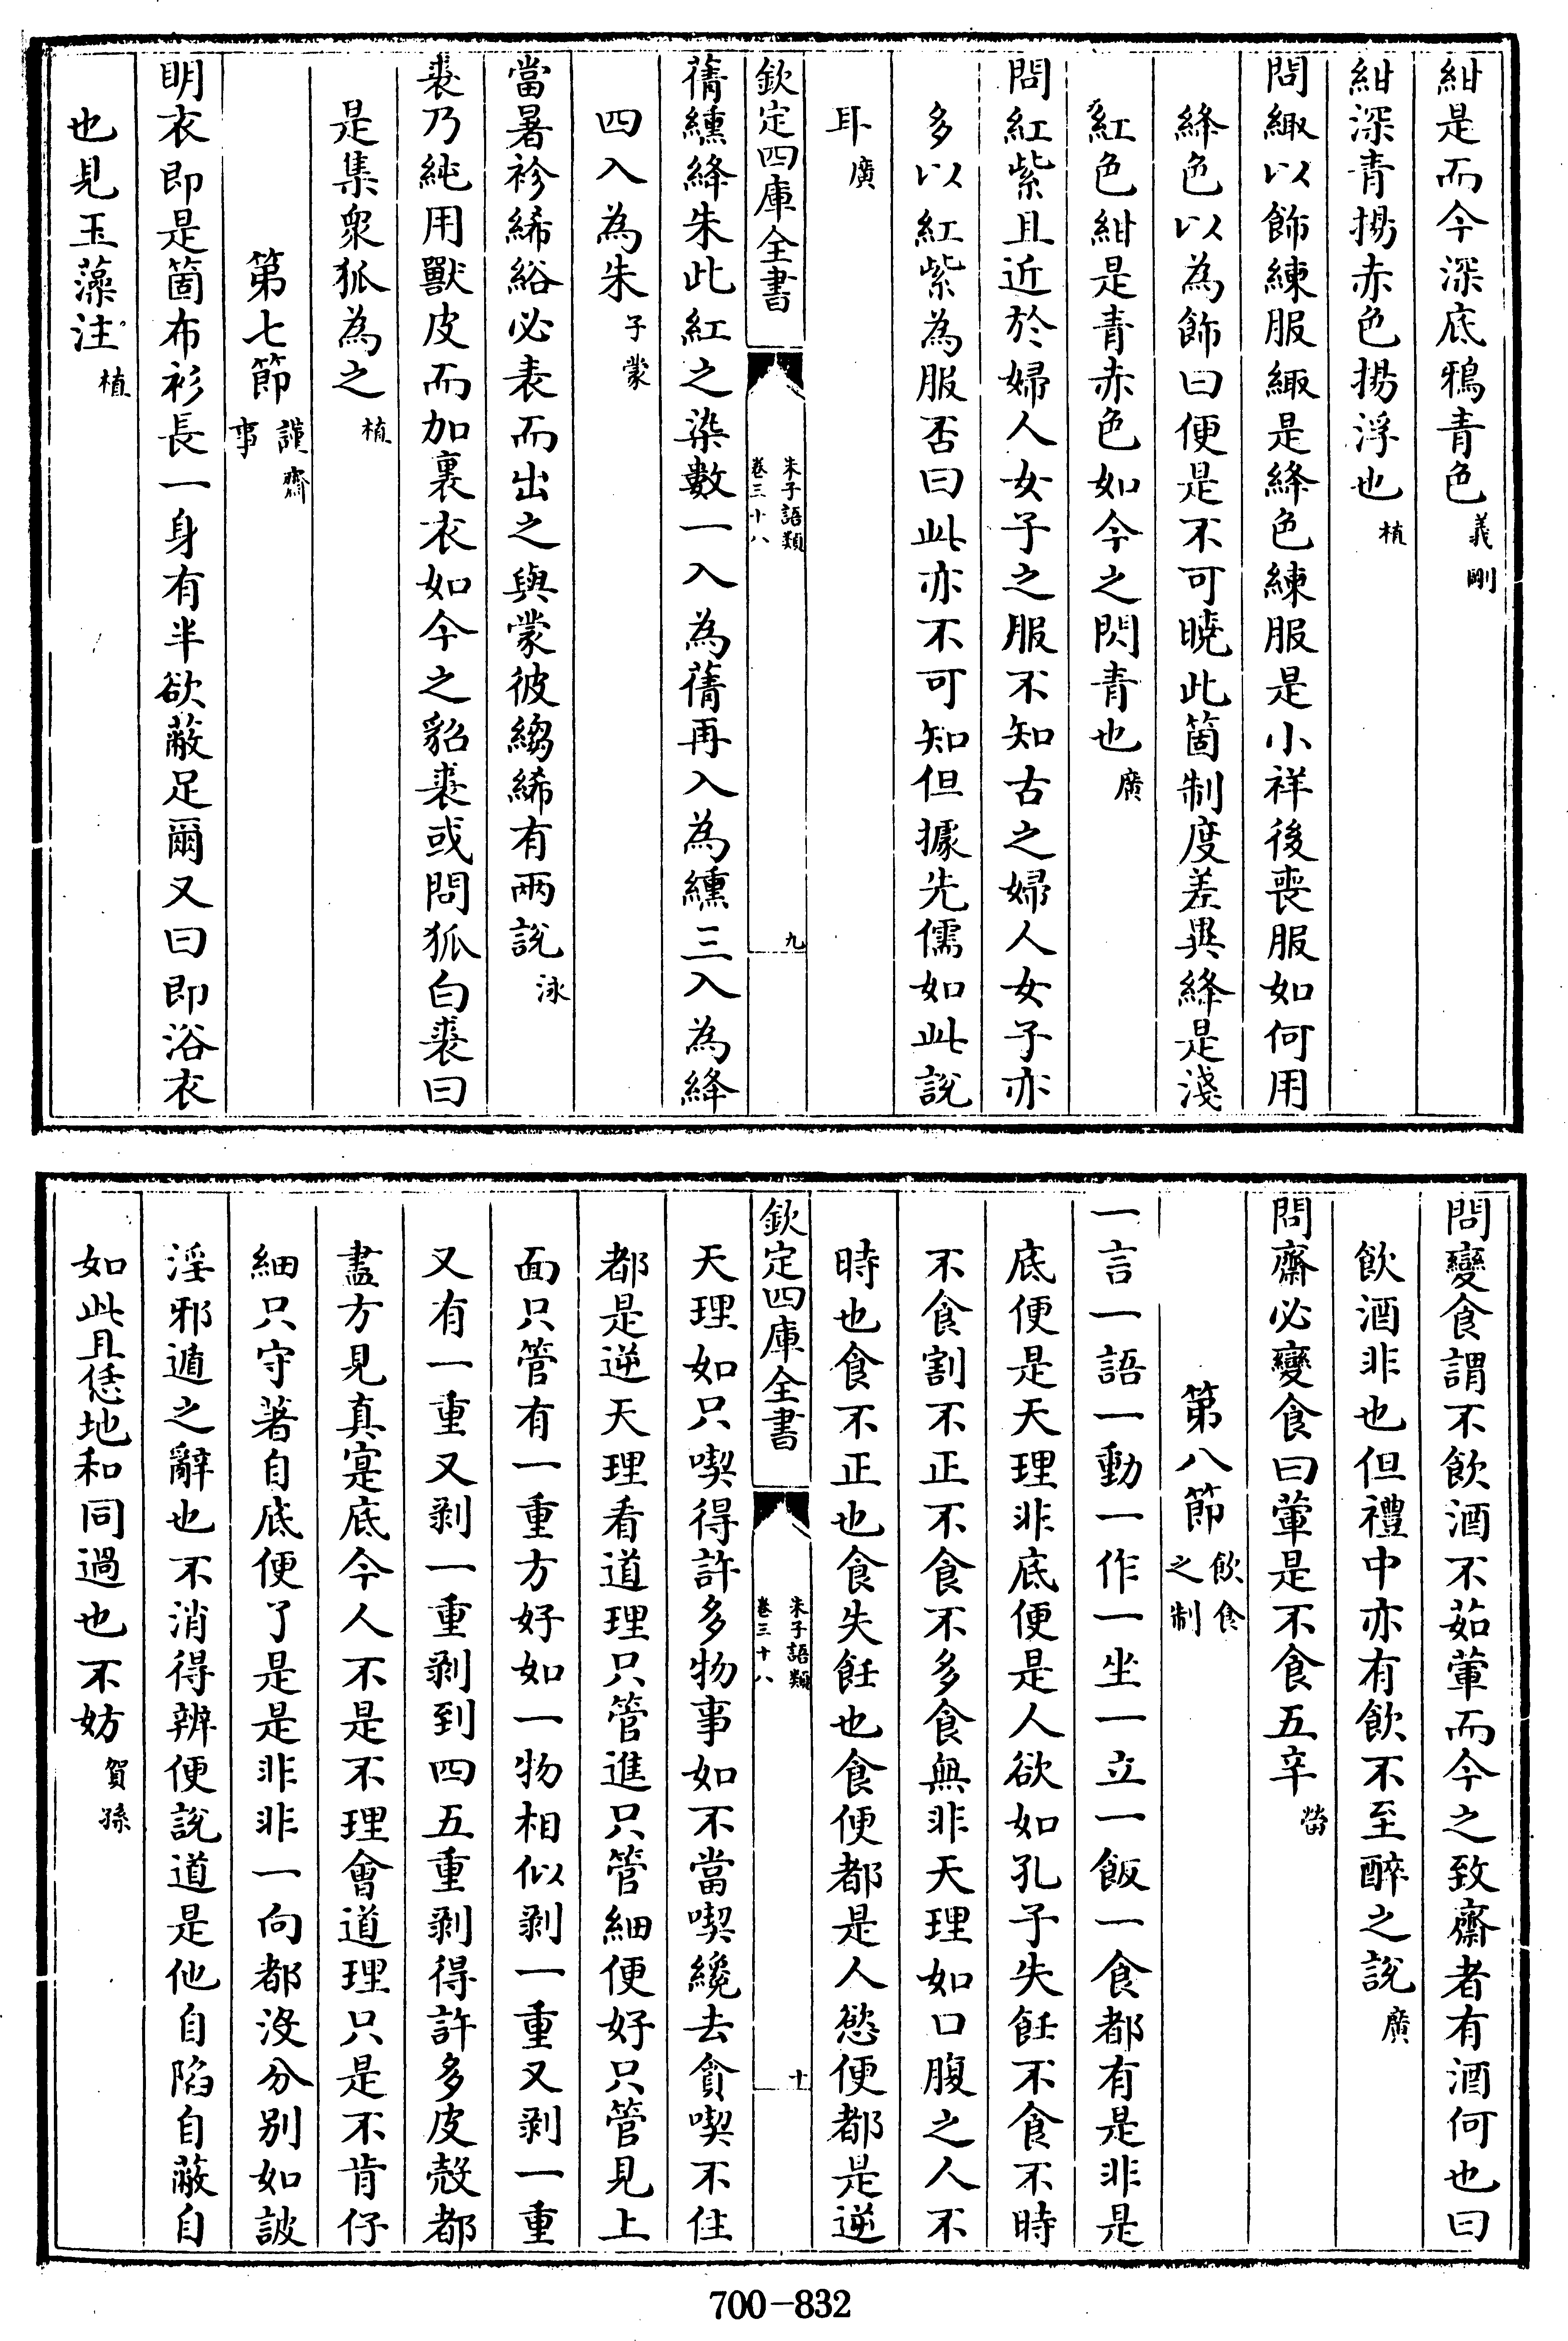 紺是而今深底鴉青色義剛
紺深青揚赤色揚浮也植
問緅以飾練服緅是絳色練服是小祥後喪服如何用
絳色以為飾曰便是不可曉此箇制度差異絳是淺
紅色紺是青赤色如今之閃青也廣
問紅紫且近於婦人女子之服不知古之婦人女子亦
多以紅紫為服否曰此亦不可知但據先儒如此說
耳廣
欽定四庫全書
朱子語類
卷三十八
九
蒨纁絳朱此紅之染數一入為蒨再入為纁三入為絳
四入為朱子蒙
當暑袗絺綌必表而出之與蒙彼縐絺有兩說泳
裘乃純用獸皮而加裏衣如今之貂裘或問狐白裘曰
是集衆狐為之植
第七節謹齋事
明衣即是箇布衫長一身有半欲蔽足爾又曰即浴衣
也見玉藻注植
問變食謂不飲酒不茹葷而今之致齋者有酒何也曰
飲酒非也但禮中亦有飲不至醉之說廣
問齋必變食曰葷是不食五辛㽦
第八節飲食之制
一言一語一動一作一坐一立一飯一食都有是非是
底便是天理非底便是人欲如孔子失飪不食不時
不食割不正不食不多食無非天理如口腹之人不
時也食不正也食失飪也食便都是人慾便都是逆
欽定四庫全書
朱子語類
卷三十八
十
天理如只喫得許多物事如不當喫纔去貪喫不住
都是逆天理看道理只管進只管細便好只管見上
面只管有一重方好如一物相似剥一重又剥一重
又有一重又剥一重剥到四五重剥得許多皮殼都
盡方見真寔底今人不是不理會道理只是不肯仔
細只守著自底便了是是非非一向都沒分别如詖
淫邪遁之辭也不消得辨便說道是他自陷自蔽自
如此且恁地和同過也不妨賀孫
700-832